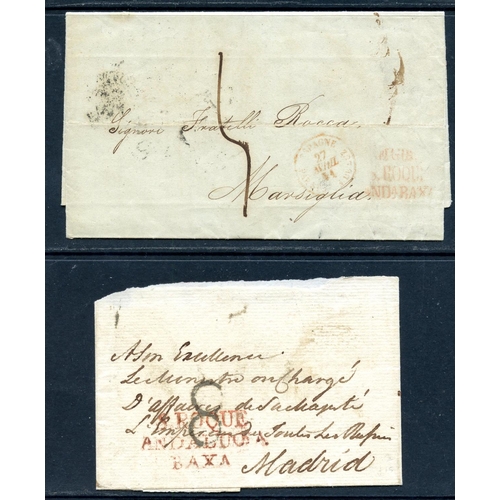 Signori Fratelli Rocca
Marsiglia
5
27
AVRIL
ROQUE
A Son Excellence
Le Ministre ou Chargé
D'affaires de Sa Majesté
L'Empereur de Toutes Les Russies
Madrid
8
S. ROQUE
ANDALUCIA
BAXA